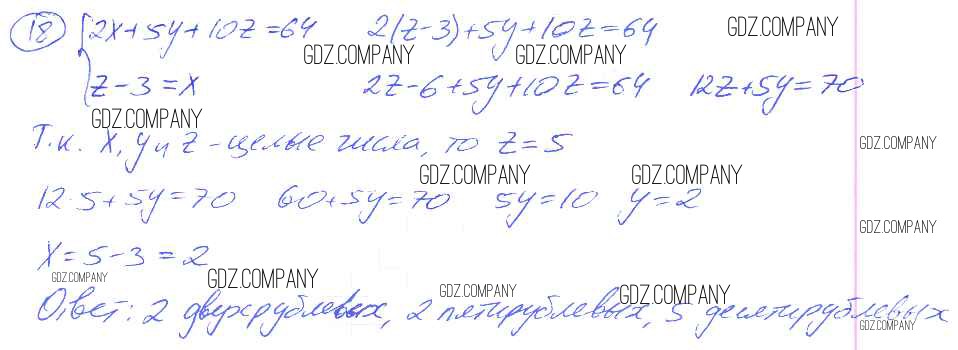 18 { 2x+5y+10z=64 2(z-3)+5y+10z=64 GDZ.COMPANY
GDZ.COMPANY GDZ.COMPANY
z-3=x 2z-6+5y+10z=64 12z+5y=70
GDZ.COMPANY
Т.к. x, y и z - целые числа, то z=5 GDZ.COMPANY
GDZ.COMPANY GDZ.COMPANY
12·5+5y=70 60+5y=70 5y=10 y=2
GDZ.COMPANY
x=5-3=2
GDZ.COMPANY GDZ.COMPANY GDZ.COMPANY GDZ.COMPANY
Ответ: 2 двухрублевых, 2 пятирублевых, 5 десятирублевых
GDZ.COMPANY